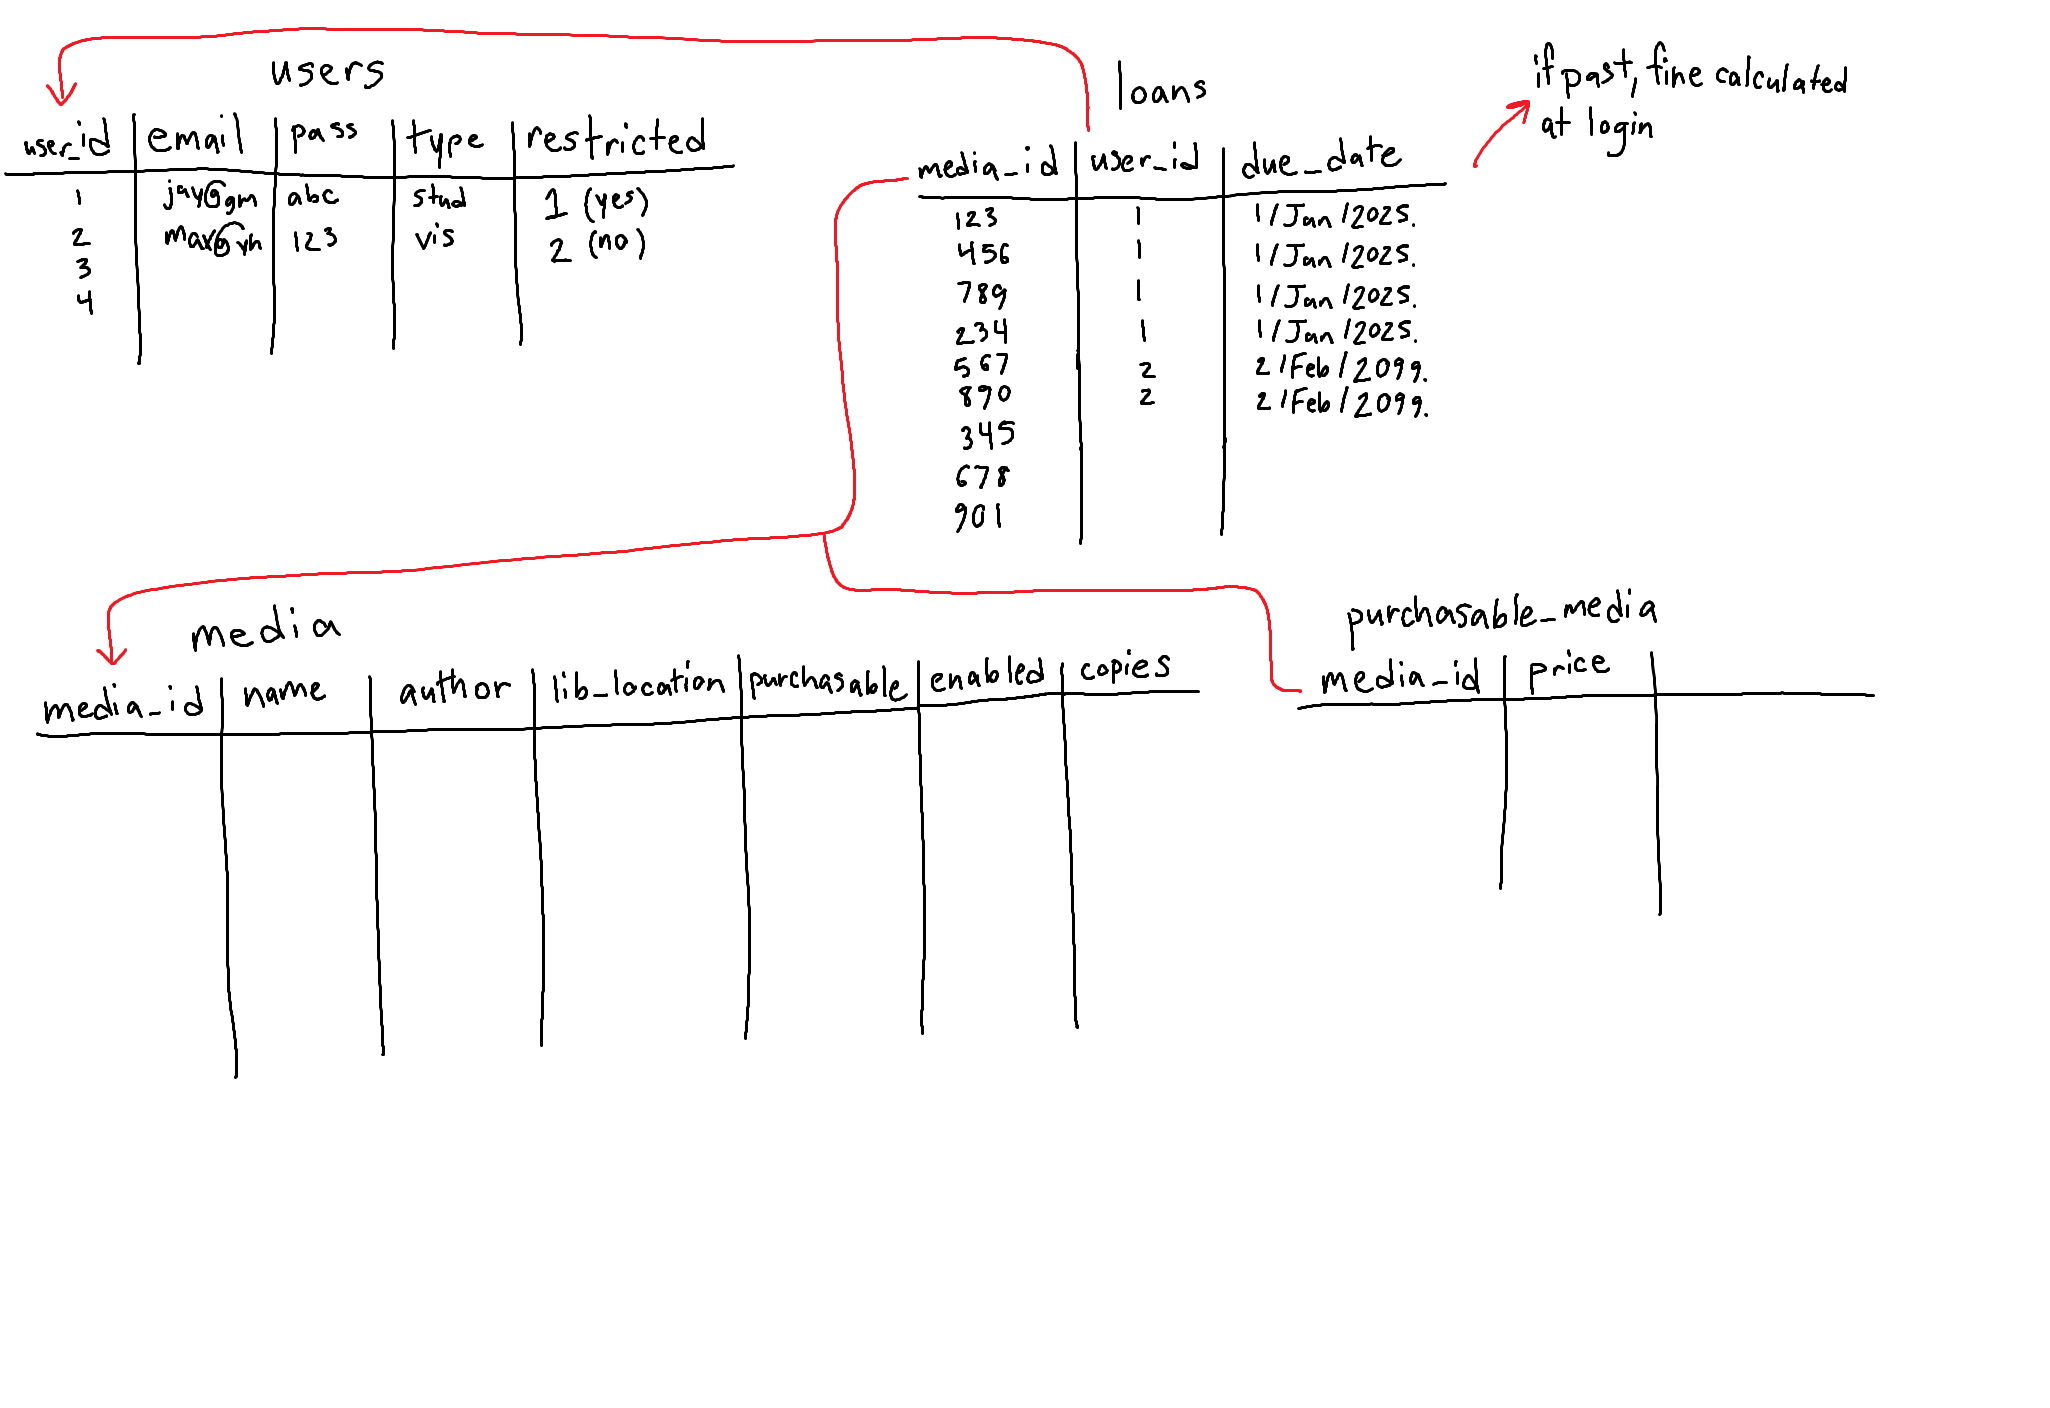 users
user_id email pass type restricted
1 jay@gm abc stud 1 (yes)
2 max@yh 123 vis 2 (no)
3
4
loans
media_id user_id due_date
123 1 1/Jan/2025.
456 1 1/Jan/2025.
789 1 1/Jan/2025.
234 1 1/Jan/2025.
567 2 2/Feb/2099.
890 2 2/Feb/2099.
345
678
901
if past, fine calculated
at login
media
media_id name author lib_location purchasable enabled copies
purchasable_media
media_id price